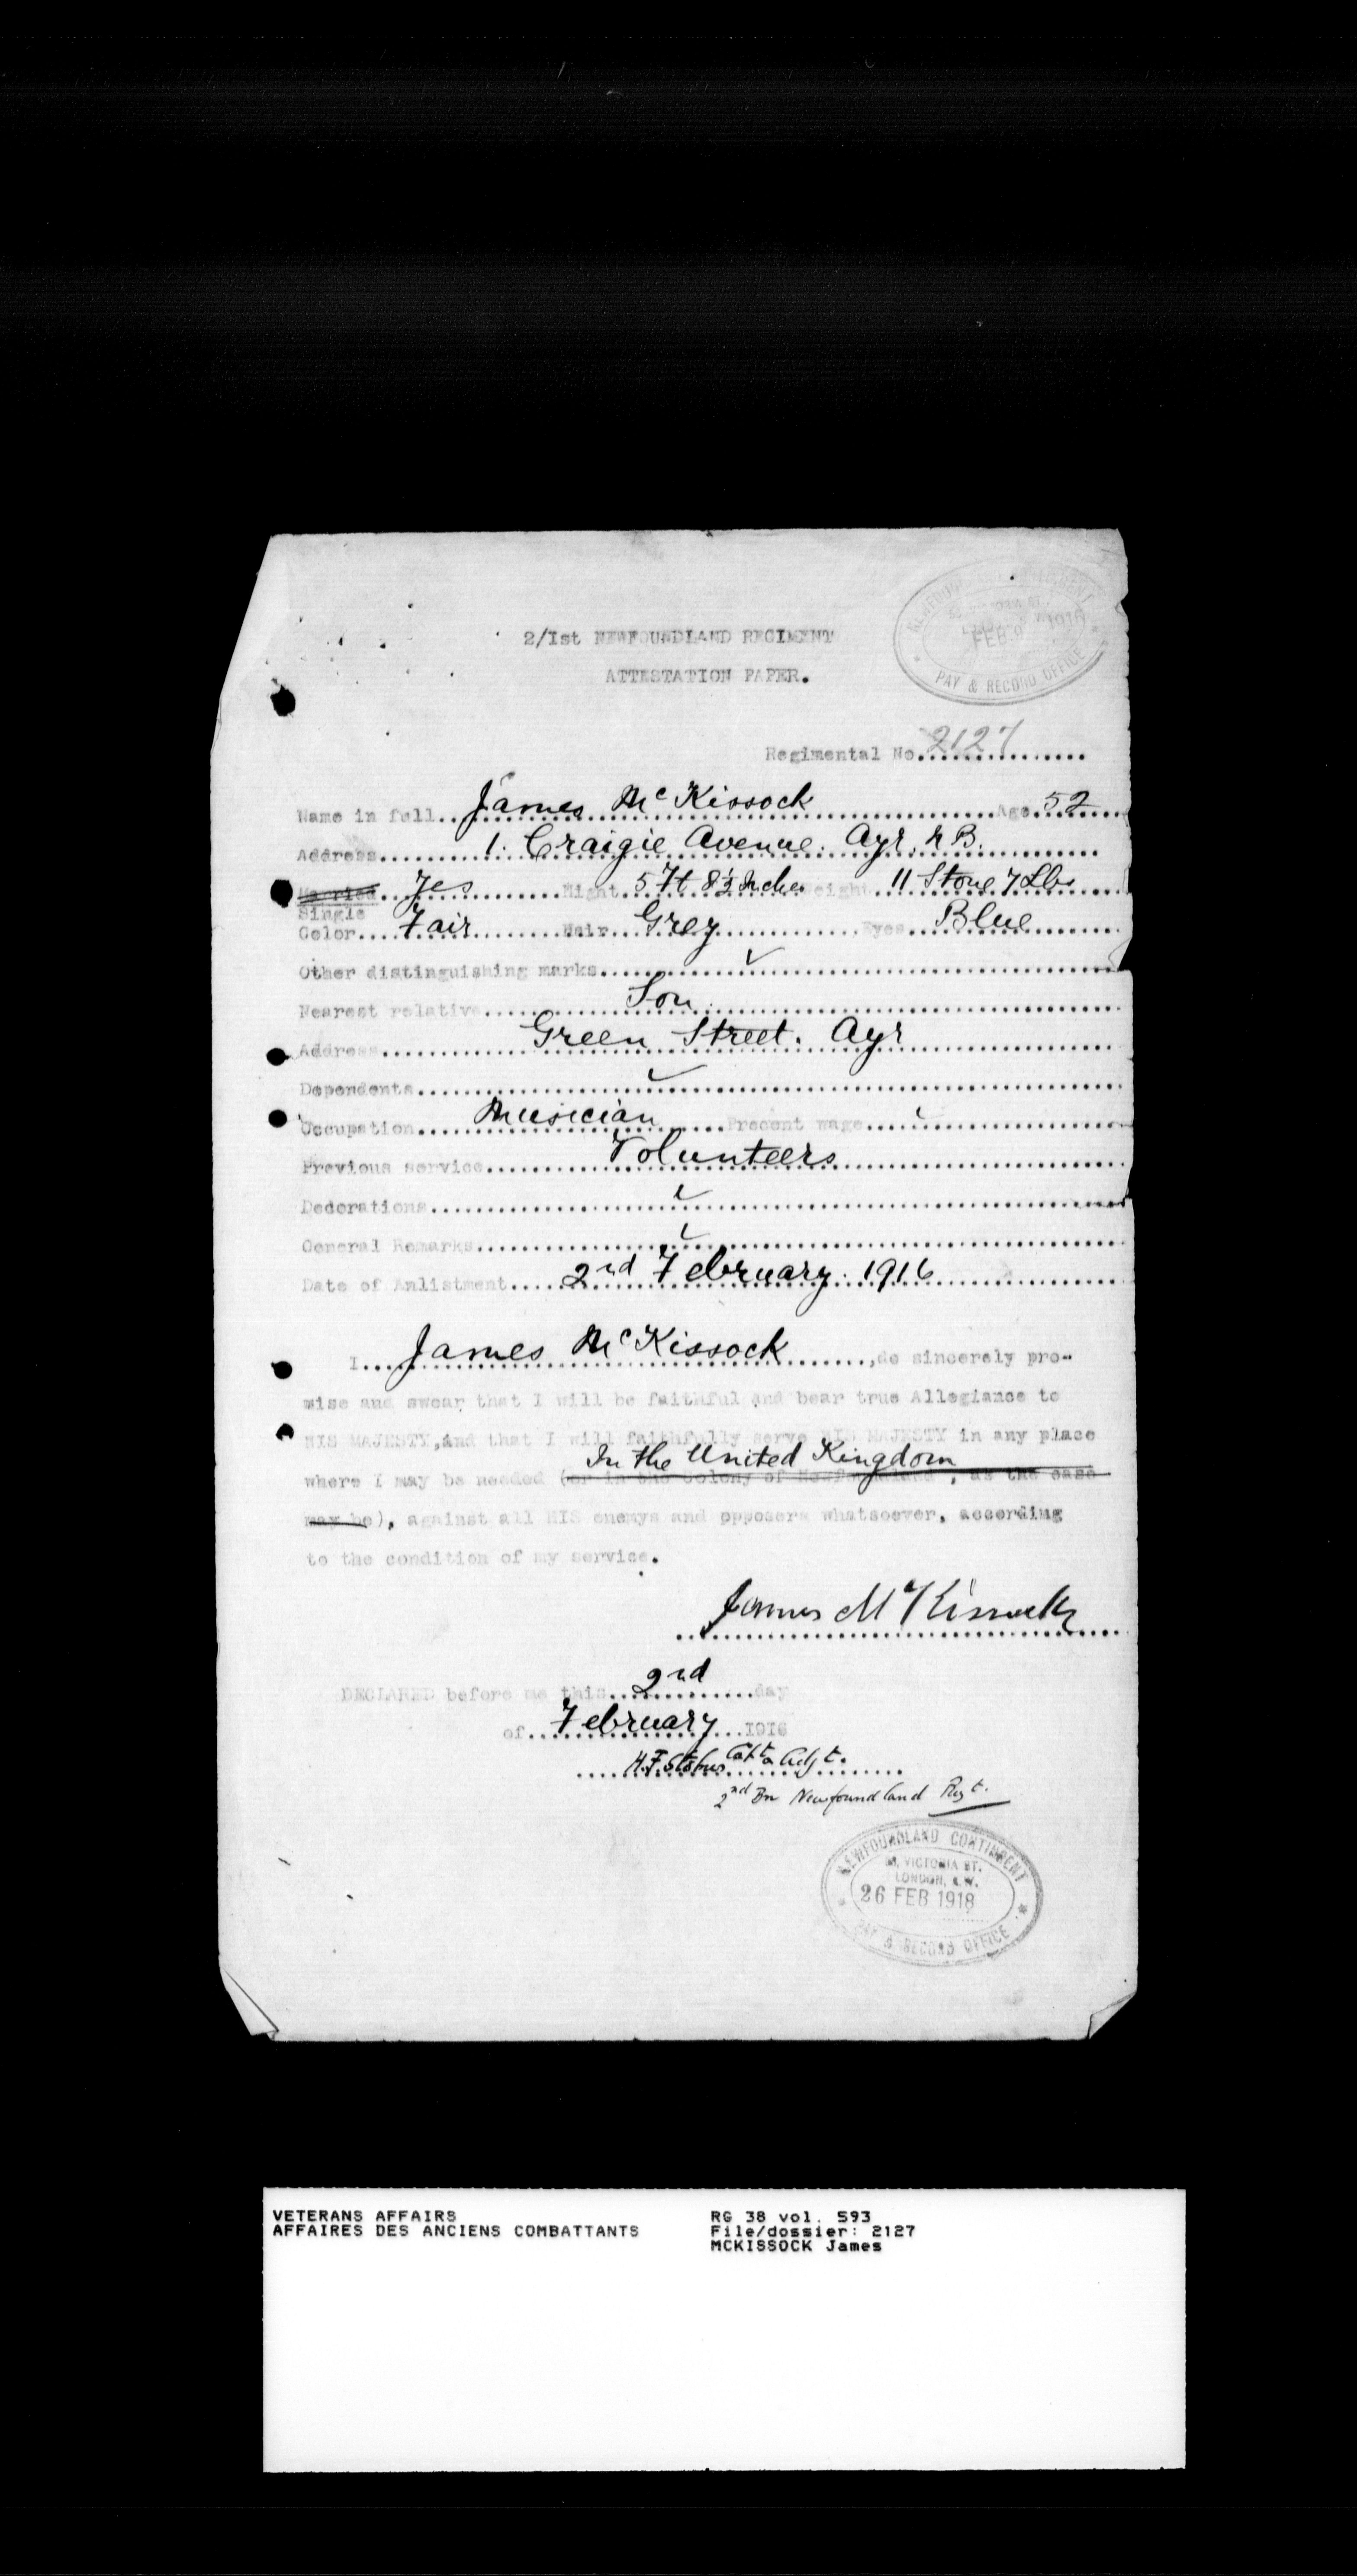 NEWFOUNDLAND CONTINGENT
FEB 9 1916
PAY & RECORD OFFICE
2/1st NEWFOUNDLAND REGIMENT
ATTESTATION PAPER.
Regimental No. 2127
Name in full James McKissock Age 52
Address 1. Craigie Avenue. Ayr. N.B.
Married Yes Hight 5 Ft 8½ Inches Weight 11 Stone 7 Lbs
Single
Color Fair Hair Grey Eyes Blue
Other distinguishing marks
Nearest relative Son
Address Green Street. Ayr
Dependents
Occupation Musician Present wage
Previous service Volunteers
Dedorations
General Remarks
Date of Anlistment 2nd February. 1916
I James McKissock, do sincerely pro-
mise and swear that I will be faithful and bear true Allegiance to
HIS MAJESTY, and that I will faithfully serve HIS MAJESTY in any place
In the United Kingdom
where I may be needed (or in the Colony of Newfoundland, as the case
may be), against all HIS enemys and opposers whatsoever, according
to the condition of my service.
James McKissock
DECLARED before me this 2nd day
of February 1916
Capt & Adjt.
2nd Bn Newfoundland Regt.
NEWFOUNDLAND CONTINGENT
VICTORIA ST.
LONDON, S.W.
26 FEB 1918
PAY & RECORD OFFICE
VETERANS AFFAIRS RG 38 vol. 593
AFFAIRES DES ANCIENS COMBATTANTS File/dossier: 2127
MCKISSOCK James